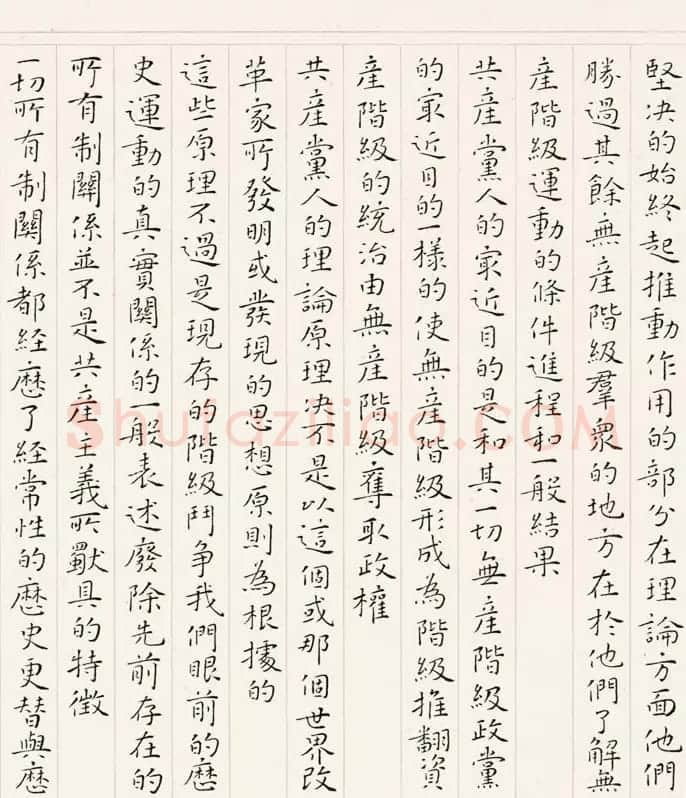 堅决的始終起推動作用的部分在理論方面他們
勝過其餘無産階級羣衆的地方在於他們了解無
産階級運動的條件進程和一般結果
共産黨人的冣近目的是和其一切無産階級政黨
的冣近目的一樣的使無産階級形成為階級推翻資
産階級的統治由無産階級奪取政權
共産黨人的理論原理决不是以這個或那個世界改
革家所發明或發現的思想原則為根據的
這些原理不過是現存的階級鬥争我們眼前的歷
史運動的真實關係的一般表述廢除先前存在的
所有制關係並不是共産主義所獨具的特徵
一切所有制關係都経歷了経常性的歷史更替與歷
Shufaziliao.COM